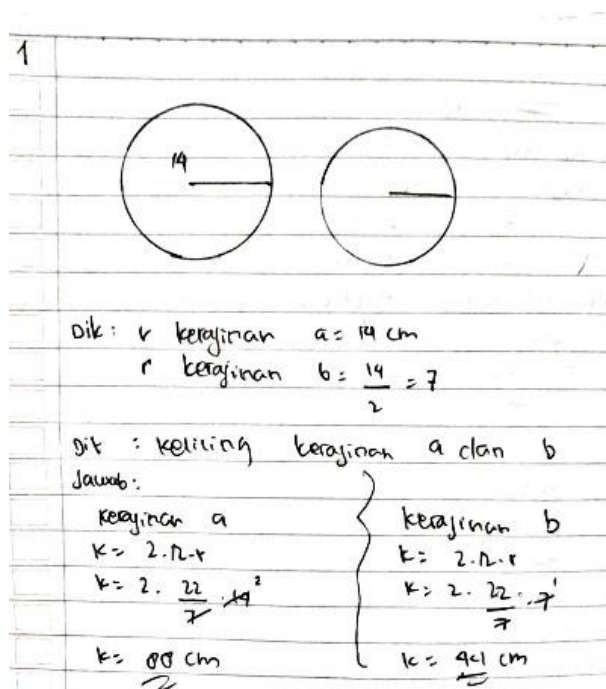 1
14
Dik : r kerajinan a = 14 cm
r kerajinan b = 14/2 = 7
Dit : keliling kerajinan a dan b
Jawab :
kerajinan a
k = 2.π.r
k = 2. 22/7 . 14 2
k = 88 cm
kerajinan b
k = 2.π.r
k = 2. 22/7 . 7 1
k = 44 cm